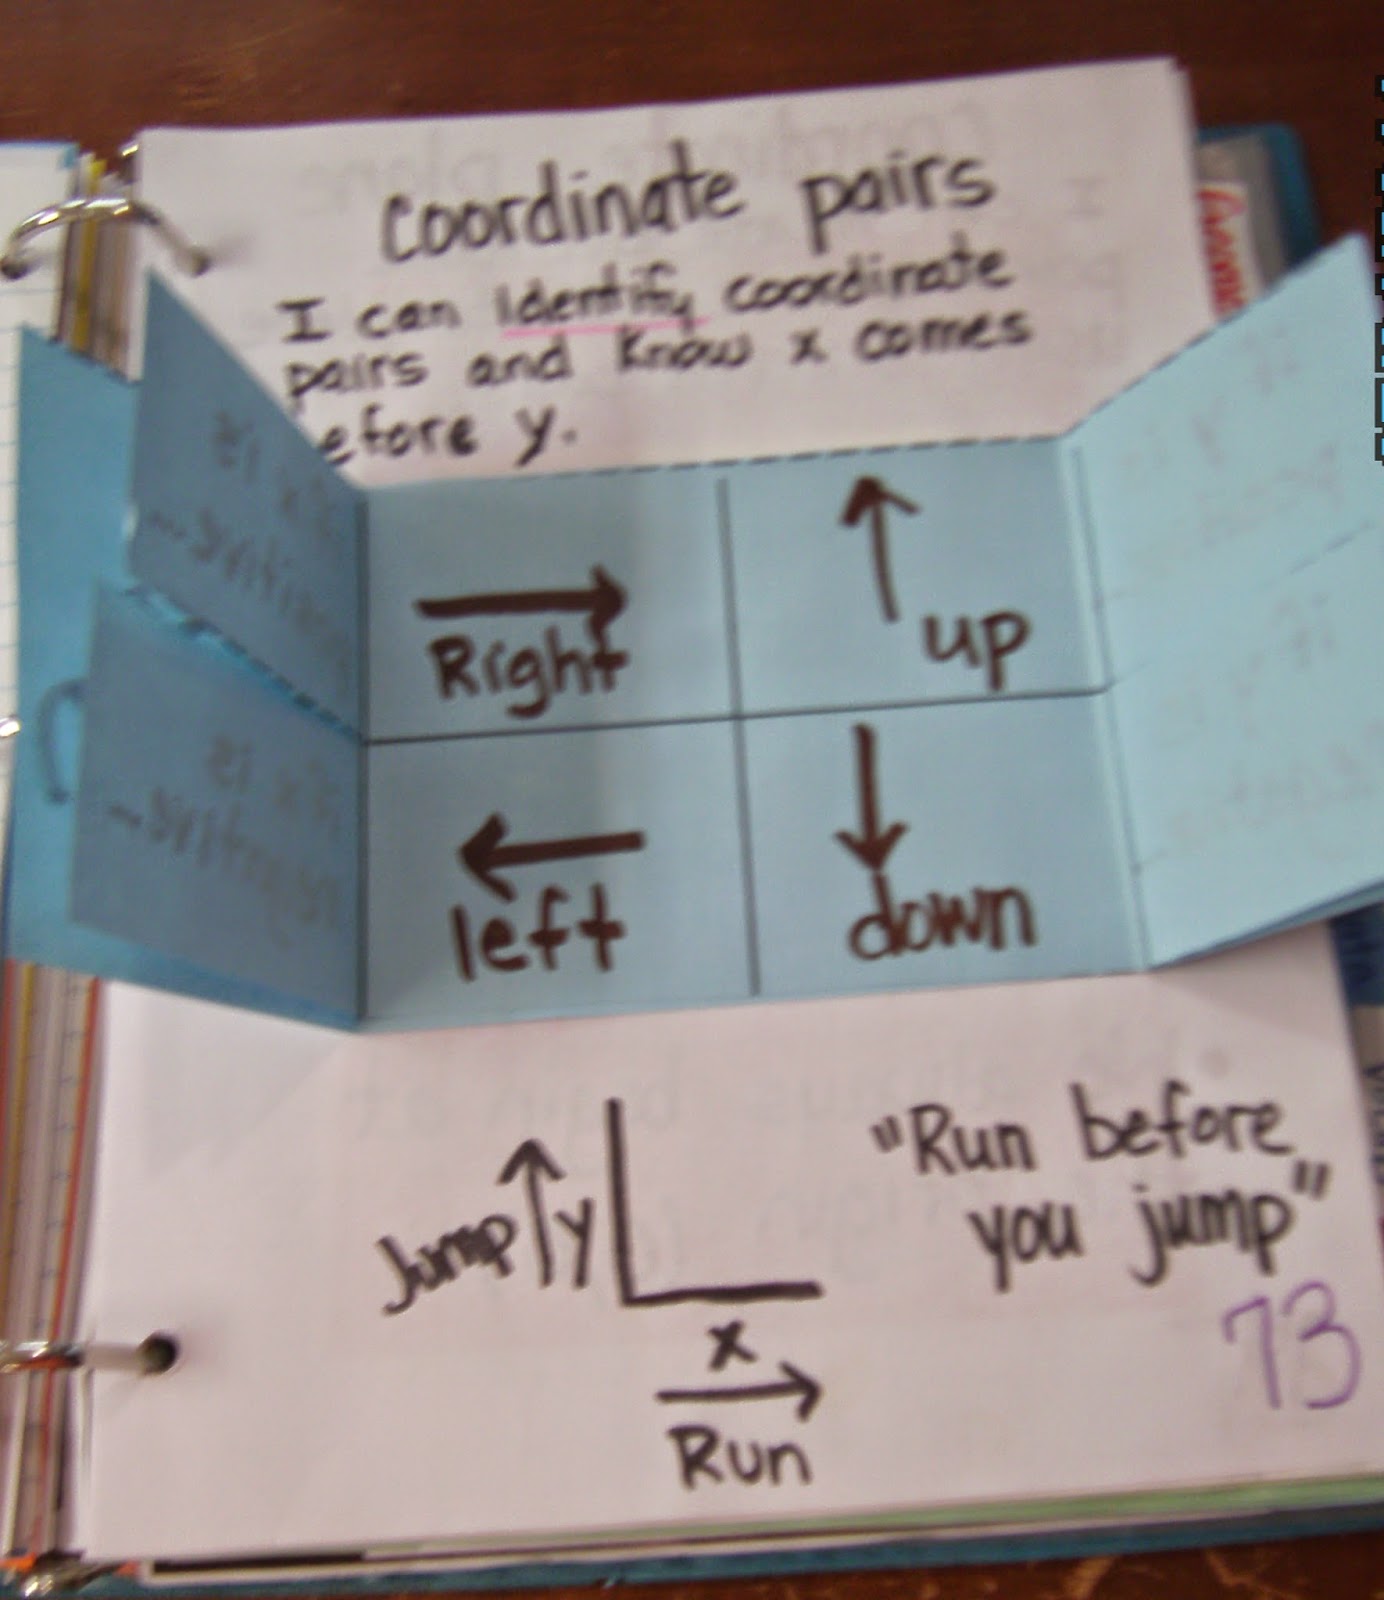 Coordinate pairs
I can identify coordinate
pairs and know x comes
efore y.
Right
up
left
down
"Run before
you jump"
Jump y
x
Run
73